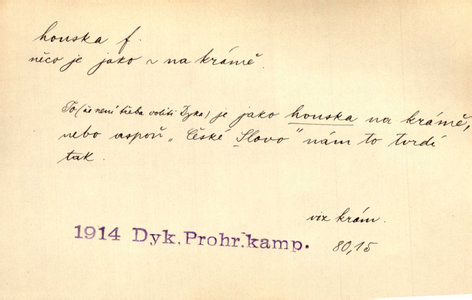 houska f.
něco je jako ~ na krámě.
To (že není třeba voliti Dyka) je jako houska na krámě,
nebo aspoň „České Slovo" nám to tvrdí
tak.
viz krám.
1914 Dyk, Prohr. kamp.
80,15